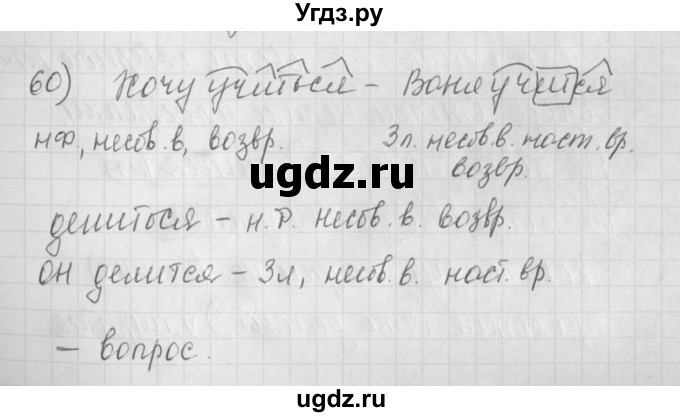 Угдз.ру
60) Хочу учиться – Ваня учится
н.ф., несов.в., возвр. 3л. несов.в. наст. вр.
возвр.
ugdz.ru
делиться – н.ф. несов. в. возвр.
он делится – 3л, несов. в. наст. вр.
– вопрос.
ugdz.ru